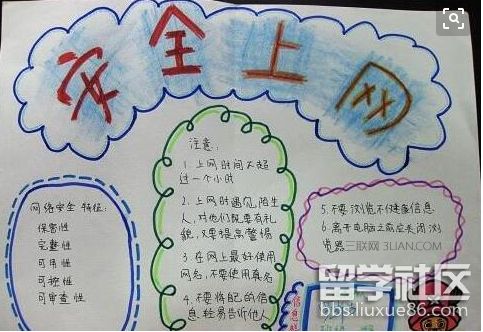 安全上网
注意:
1、上网时间不超
过一个小时
2、上网时遇见陌生
人,对他们既要有礼
貌,又要提高警惕
3、在网上最好使用
网名,不要使用真名
4、不要将自己的信
息轻易告诉他人
网络安全 特征:
保密性
完整性
可用性
可控性
可审查性
5、不要浏览不健康信息
6、离开电脑之前应关闭浏
览器
三联网 3LIAN.COM
留学社区
bbs.liuxue86.com